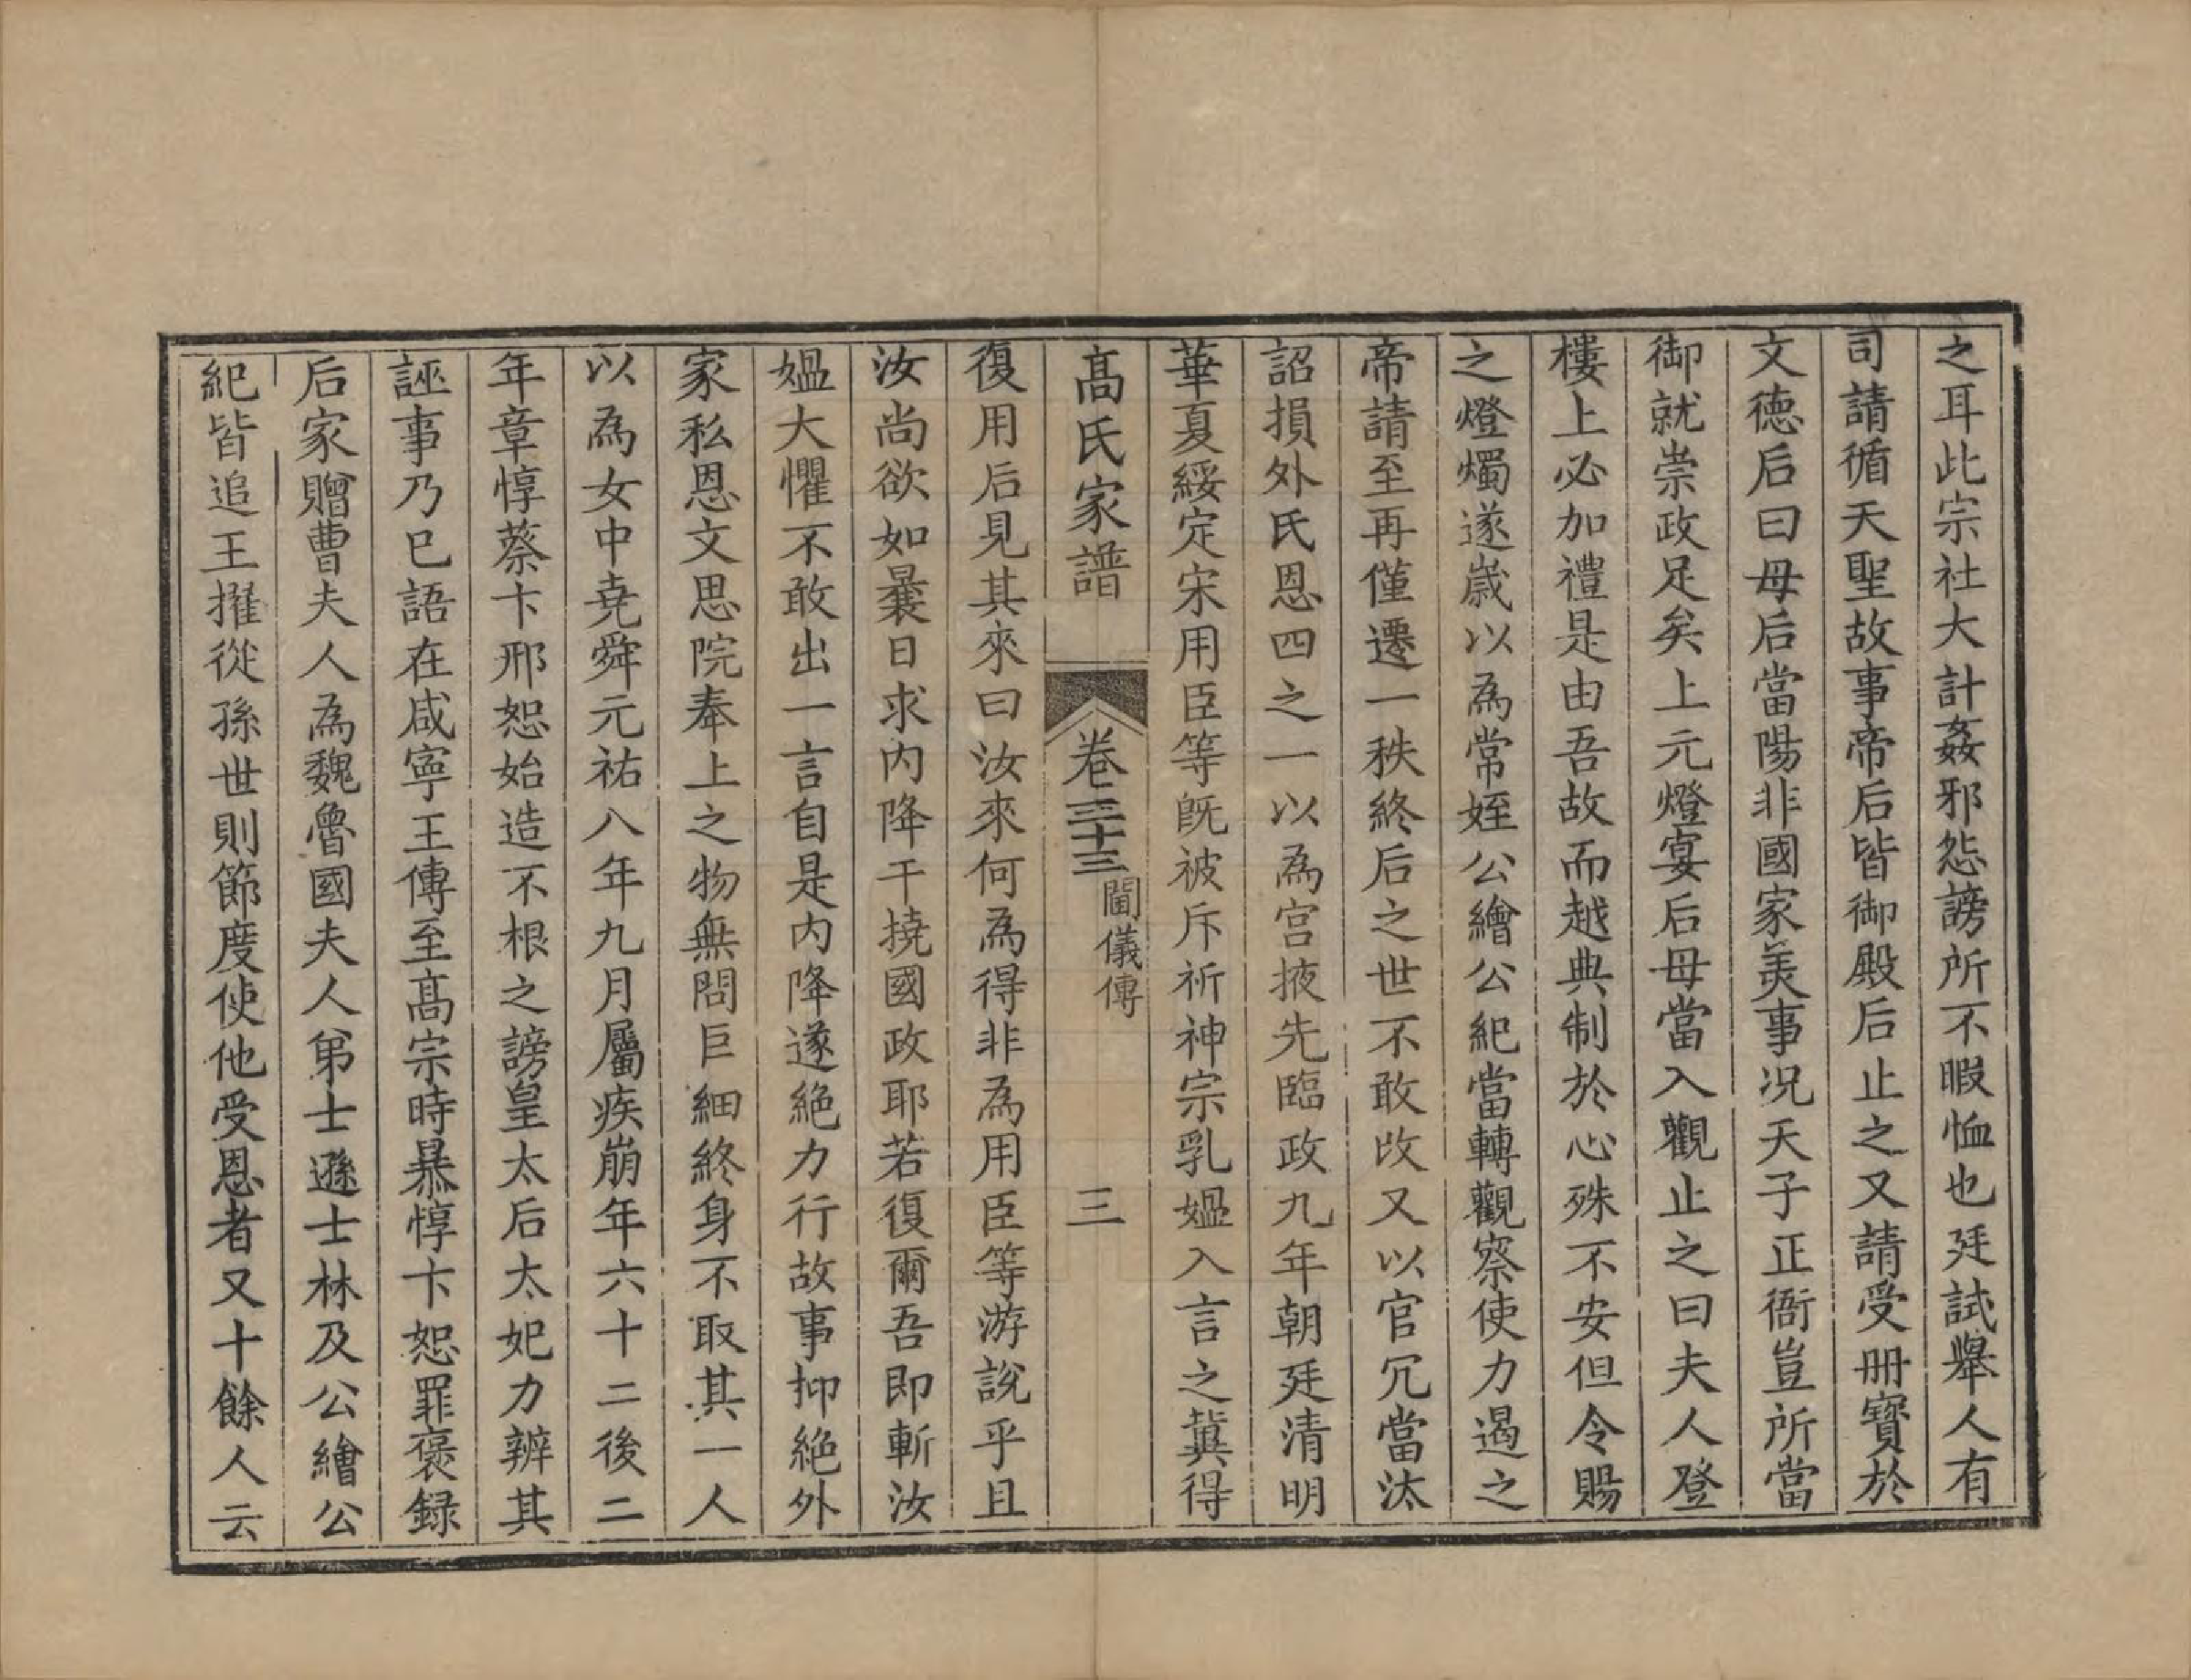 之耳此宗社大計姦邪怨謗所不暇恤也廷試舉人有
司請循天聖故事帝后皆御殿后止之又請受冊寶於
文德后曰母后當陽非國家美事況天子正衙豈所當
御就崇政足矣上元燈宴后母當入觀止之曰夫人登
樓上必加禮是由吾故而越典制於心殊不安但令賜
之燈燭遂歲以為常姪公繪公紀當轉觀察使力遏之
帝請至再僅遷一秩終后之世不敢改又以官冗當汰
詔損外氏恩四之一以為宮掖先臨政九年朝廷清明
華夏綏定宋用臣等既被斥祈神宗乳媼入言之冀得
高氏家譜 卷三十三 閫儀傳 三
復用后見其來曰汝來何為得非為用臣等游說乎且
汝尚欲如曩日求內降干撓國政耶若復爾吾即斬汝
媼大懼不敢出一言自是內降遂絕力行故事抑絕外
家私恩文思院奉上之物無問巨細終身不取其一人
以為女中堯舜元祐八年九月屬疾崩年六十二後二
年章惇蔡卞邢恕始造不根之謗皇太后太妃力辨其
誣事乃已語在咸寧王傳至高宗時暴惇卞恕罪褒錄
后家贈曹夫人為魏魯國夫人弟士遜士林及公繪公
紀皆追王擢從孫世則節度使他受恩者又十餘人云